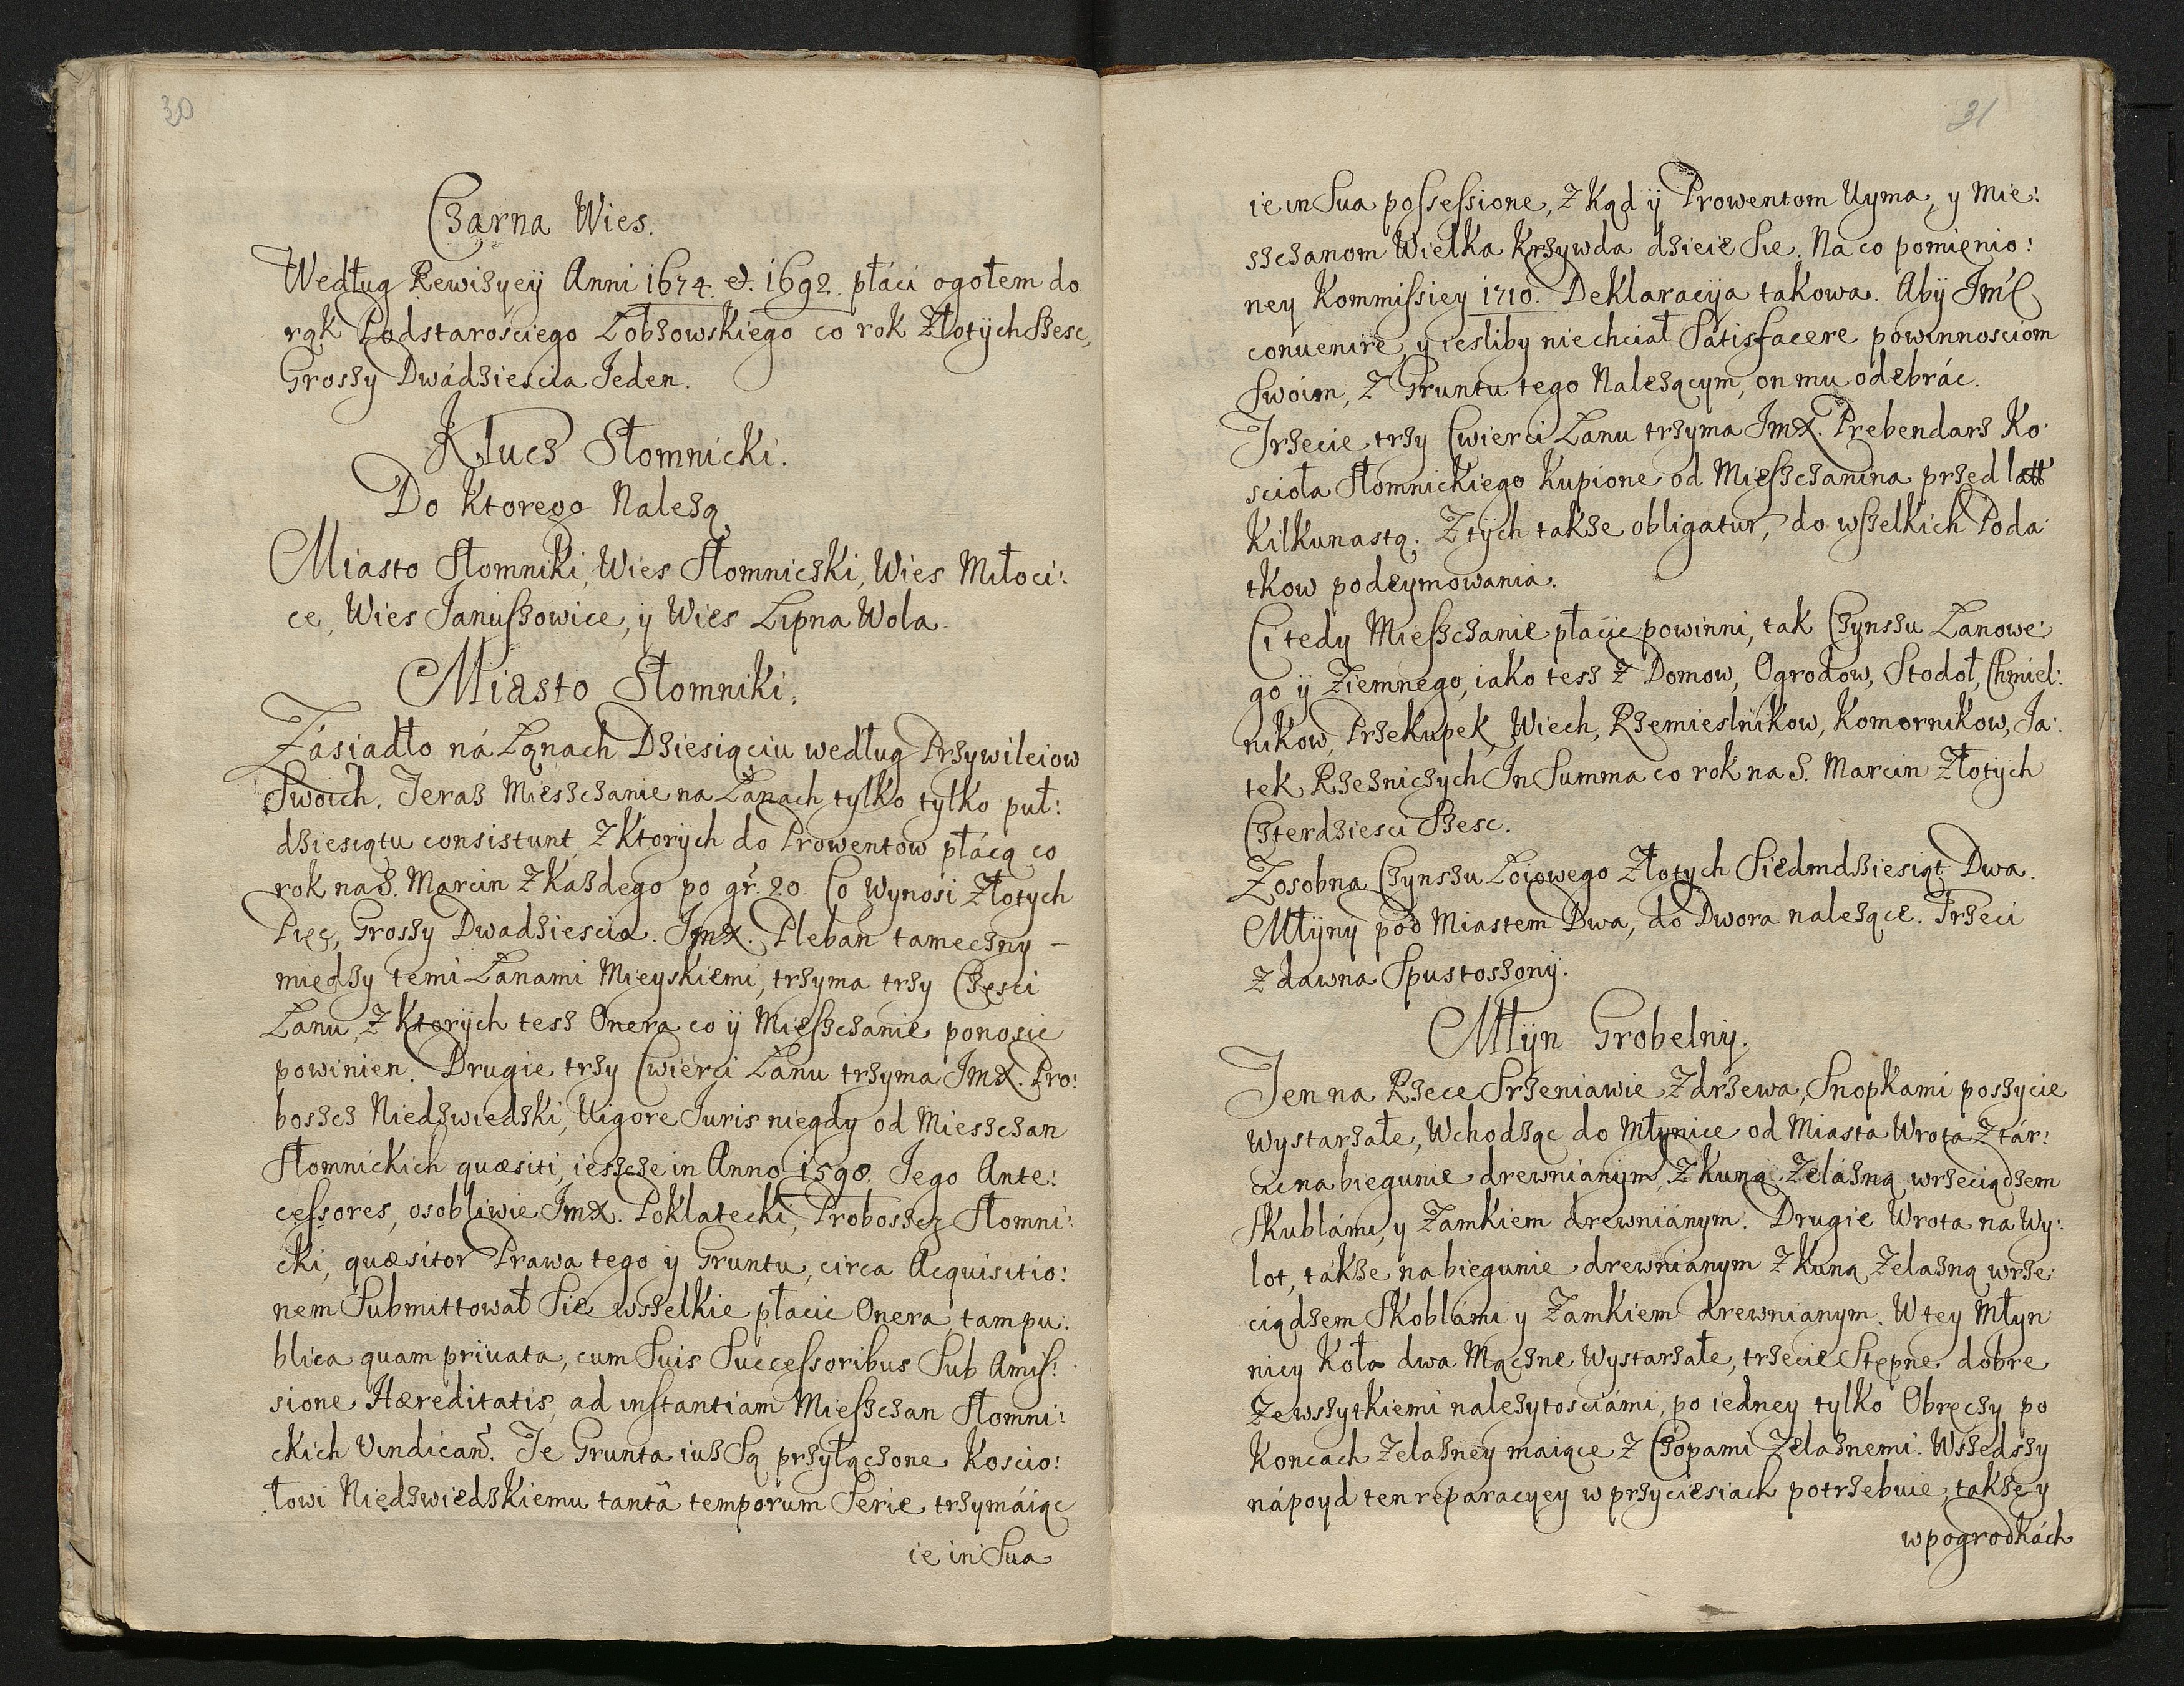 30
Czarna Wies.
Według Rewizycij Anni 1674. et. 1692. płáci ogołem do
rąk Podstarosciego Łobzowskiego co rok Złotÿch Szesc,
Groszy Dwádziescia Jeden.
Klucz Słomnicki.
Do Ktorego Nalezą
Miasto Słomniki, Wies Słomniczki, Wies Miłoci:
ce, Wies Januszowice, y Wies Lipna Wola.
Miasto Słomniki.
Zásiadło ná Łanach Dziesiąciu według Przywileiow
Swoich. Teraz Mieszczanie na Łanach tylko tylko puł:
dziesiątu consistunt, z Ktorÿch do Prowentow płácą co
rok na S. Marcin z Kazdego po gr. 20. Co wynosi Złotych
Pięc, Groszy Dwadziescia. Jmx. Pleban tameczny –
między temi Łanami Mieyskiemi, trzyma trzy Częsci
Łanu, z Ktorÿch tesz Onera co ÿ Mieszczanie ponosic
powinien. Drugie trzy Cwierci Łanu trzyma Jmx. Pro:
boszcz Niedzwiedzki, Vigore Juris niegdy od Mieszczan
Słomnickich quæsiti, ieszcze in Anno 1598. Jego Ante:
cessores, osobliwie Jmx. Poklatecki, Proboszcz Słomni:
cki, quæsitor Prawa tego ÿ Gruntu, circa Acquisitio:
nem Submittował Sie wszelkie płacic Onera, tam pu:
blica quam priuata, cum Suis Successoribus Sub Amis:
sione Hæreditatis, ad instantiam Mieszczan Słomni:
ckich Vindican. Te Grunta iuz Są przyłączone Koscio:
łowi Niedzwiedzkiemu tantâ temporum Serie trzymáiąc
ie in Sua
31
ie in Sua possessione, z Kąd ÿ Prowentom Uyma, y Mie:
szczanom Wielka Krzywda dzieie Sie. Na co pomienio:
ney Kommissiey 1710. Deklaracyja takowa. Abÿ Jmc
conuenire, y iesliby niechciał Satisfacere powinnosciom
Swoim, z Gruntu tego Nalezącym, on mu odebrác.
Trzecie trzy Cwierci Łanu trzyma Jmx. Prebendarz Ko:
scioła Słomnickiego Kupione od Mieszczanina przed latt
Kilkunastą. Z tÿch takze obligatur, do wszelkich Poda:
tkow podeymowania.
Ci tedy Mieszczanie płacic powinni, tak Czynszu Łanowe:
go ÿ Ziemnego, iako tesz z Domow, Ogrodow, Stodoł, Chmiel:
nikow, Przekupek, Wiech, Rzemieslnikow, Komornikow, Ja:
tek Rzeznicych In Summa co rok na S. Marcin Złotÿch
Czterdziesci Szesc.
Zosobna Czynszu Łoiowego Złotych Siedmdziesiąt Dwa.
Młÿnÿ pod Miastem Dwa, do Dwora nalezące. Trzeci
z dawna Spustoszonÿ.
Młÿn Grobelnÿ.
Ten na Rzece Srzeniawie z drzewa, Snopkami poszycie
Wystarzałe, Wchodząc do Młynice od Miasta Wrota z tár:
cic na biegunie drewnianÿm, z Kuną Zelázną wrzeciądzem
Skublámi, y Zamkiem drewniánym. Drugie Wrota na Wy:
lot, tákze na biegunie drewnianym z Kuną Zelazną wrze:
ciądzem Skoblámi y Zamkiem drewnianym. W tey Młyn
nicy Koła dwa Mączne Wystarzałe, trzecie Stępne dobre
Zewszytkiemi nalezytosciámi, po iedney tylko Obręczy po
Koncach Zelazney maiące z Czopami Zelaznemi. Wszedszy
nápoyd ten reparacyey w przyciesiach potrzebuie, takze y
w pogrodkách